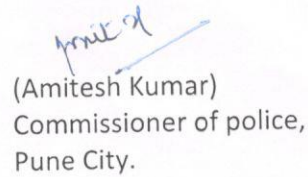 (Amitesh Kumar)
Commissioner of police,
Pune City.